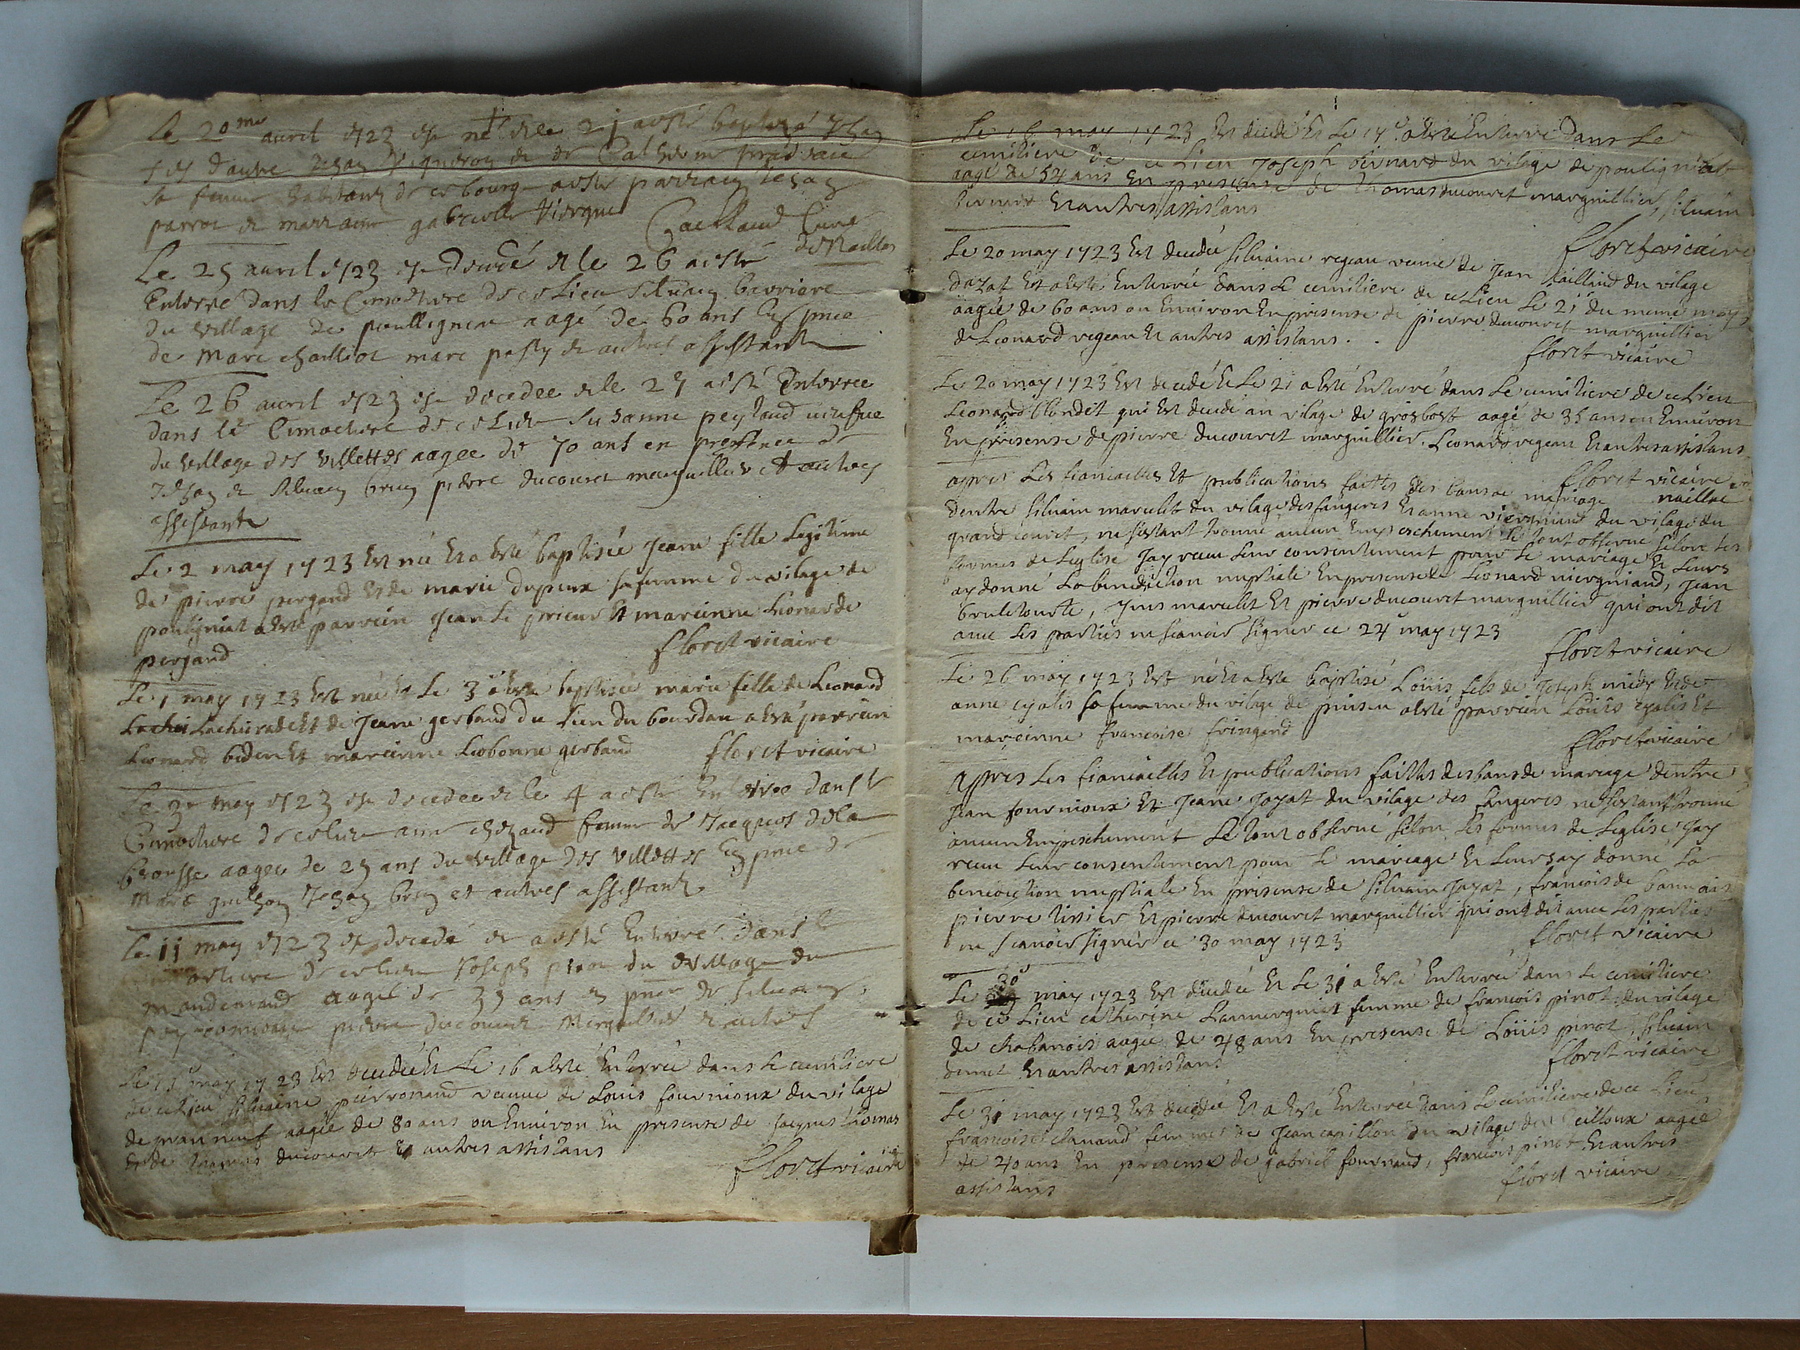 Le 20me avril 1723 est né et le 21 a esté baptizé Jehan
fils d'autre Jehan et de Catherine
sa femme habitans de ce bourg a esté parrain Jehan
parrot et marraine gabrielle Vierque
Curé
de Naillac
Le 25 avril 1723 est decedé et le 26 a esté
Enterré dans le Cimetiere de ce Lieu Siluain barriere
du village de poullignat aagé de 60 ans En pnce
de Marc chailliot marc et autres assistants
Le 26 avril 1723 est decedee et le 27 a esté Enterree
dans le Cimetiere de ce Lieu Susanne peytaud veufue
du village des villettes aagee de 70 ans en presence de
Jehan et Siluain brun pierre ducouret marguillier et autres
assistants
Le 2 may 1723 Est née Et a esté baptisée Jeane fille Legitime
de pierre pergaud Et de marie dupeux sa femme du vilage de
poulignat a esté parrein Jean Le prieur Et mareinne Lionarde
pergaud
floret vicaire
Le 1 may 1723 Est née Et Le 3 a esté baptisée marie fille de Lionard
Lachirabe Et de Jeane gerbaud du Lieu du bourdau a esté parrein
Lionard bidon Et mareinne Liobonne gerbaud floret vicaire
Le 3e may 1723 est decedee et le 4 a esté Enterree dans le
Cimetiere de ce lieu anne chezaud femme de Jacques dela
brousse aagee de 25 ans du village des villettes En pnce de
Marc guilhon Jehan brun et autres assistants
Le 11 may 1723 est decedé et a esté Enterré dans le
de ce lieu Joseph du village du
aagé de 35 ans en pnce de Siluain
pierre ducouret Marguillier et autres
Le 15 may 1723 Est decedée Et Le 16 a esté Enterrée dans Le cemitiere
de ce Lieu Siluaine pierronaud veuue de Louis fournioux du vilage
de mas neuf aagée de 80 ans ou Enuiron En presense de Jacques thomas
Et de thomas ducouret Et autres assistans
floret vicaire
Le 16 may 1723 Est decedé Et Le 17 a esté Enterré dans Le
cemitiere de ce Lieu Joseph bernard du vilage de poulignat
aagé de 54 ans En presense de thomas ducouret marguillier, siluain
bernard Et autres assistans
floret vicaire
Le 20 may 1723 Est decedée Siluaine regeau veuue de Jean taillaud du vilage
dazat Et a esté Enterrée dans Le cemitiere de ce Lieu Le 21 du meme moys
aagée de 60 ans ou Enuiron En presense de pierre ducouret marguillier
de Lionard regeau Et autres assistans
floret vicaire
Le 20 may 1723 Est decedé Et Le 21 a esté Enterré dans Le cemitiere de ce Lieu
Leonard blondet qui Est decedé au vilage de grosbost aagé de 35 ans ou Enuiron
En presense de pierre ducouret marguillier. Lionard regeau Et autres assistans
floret vicaire
naillac
apres Les fiancailles Et publications faittes des bans de mariage
dentre siluain marulet du vilage des fangeres Et anne viergniaud du vilage du
grand couret, ne sestant trouué aucun Empeschement Le tout obserué selon Les
formes de Leglise Jay receu Leur consentement pour Le mariage Et Leurs
ay donné La benediction nuptiale En presense de Lionard niergniaud, Jean
brule tourte, yves marulet Et pierre ducouret marguillier qui ont dit
auec Les parties ne scauoir signer ce 24 may 1723
floret vicaire
Le 26 may 1723 Est né Et a esté baptisé Loüis fils de Joseph midy Et de
anne cyalis sa femme du vilage de a esté parrein Loüis cyalis Et
mareinne francoise fringand
floret vicaire
Apres Les fiancailles Et publications faittes des bans de mariage dentre
Jean fournioux Et Jeane Jayat du vilage des fangeres ne sestant trouué
aucun Empeschement Le tout obserué selon Les formes de Leglise, Jay
receu Leur consentement pour Le mariage Et Leurs ay donné La
benediction nuptiale En presense de siluain Jayat, francois de bannais
pierre tissier Et pierre ducouret marguillier qui ont dit auec Les parties
ne scauoir signer ce 30 may 1723
floret vicaire
30
Le may 1723 Est decedée Et Le 31 a esté Enterrée dans Le cemitiere
de ce Lieu catherine Lannergniat femme de francois pinot, du vilage
de chabanois aagée de 48 ans En presense de Loüis pinot, siluain
Et autres assistans
floret vicaire
Le 31 may 1723 Est decedée Et a esté Enterrée dans Le cemitiere de ce Lieu
francoise clanaud femme de Jean capillon du vilage des aagée
de 40 ans En presense de gabriel fournaud, francois pinot Et autres
assistans
floret vicaire